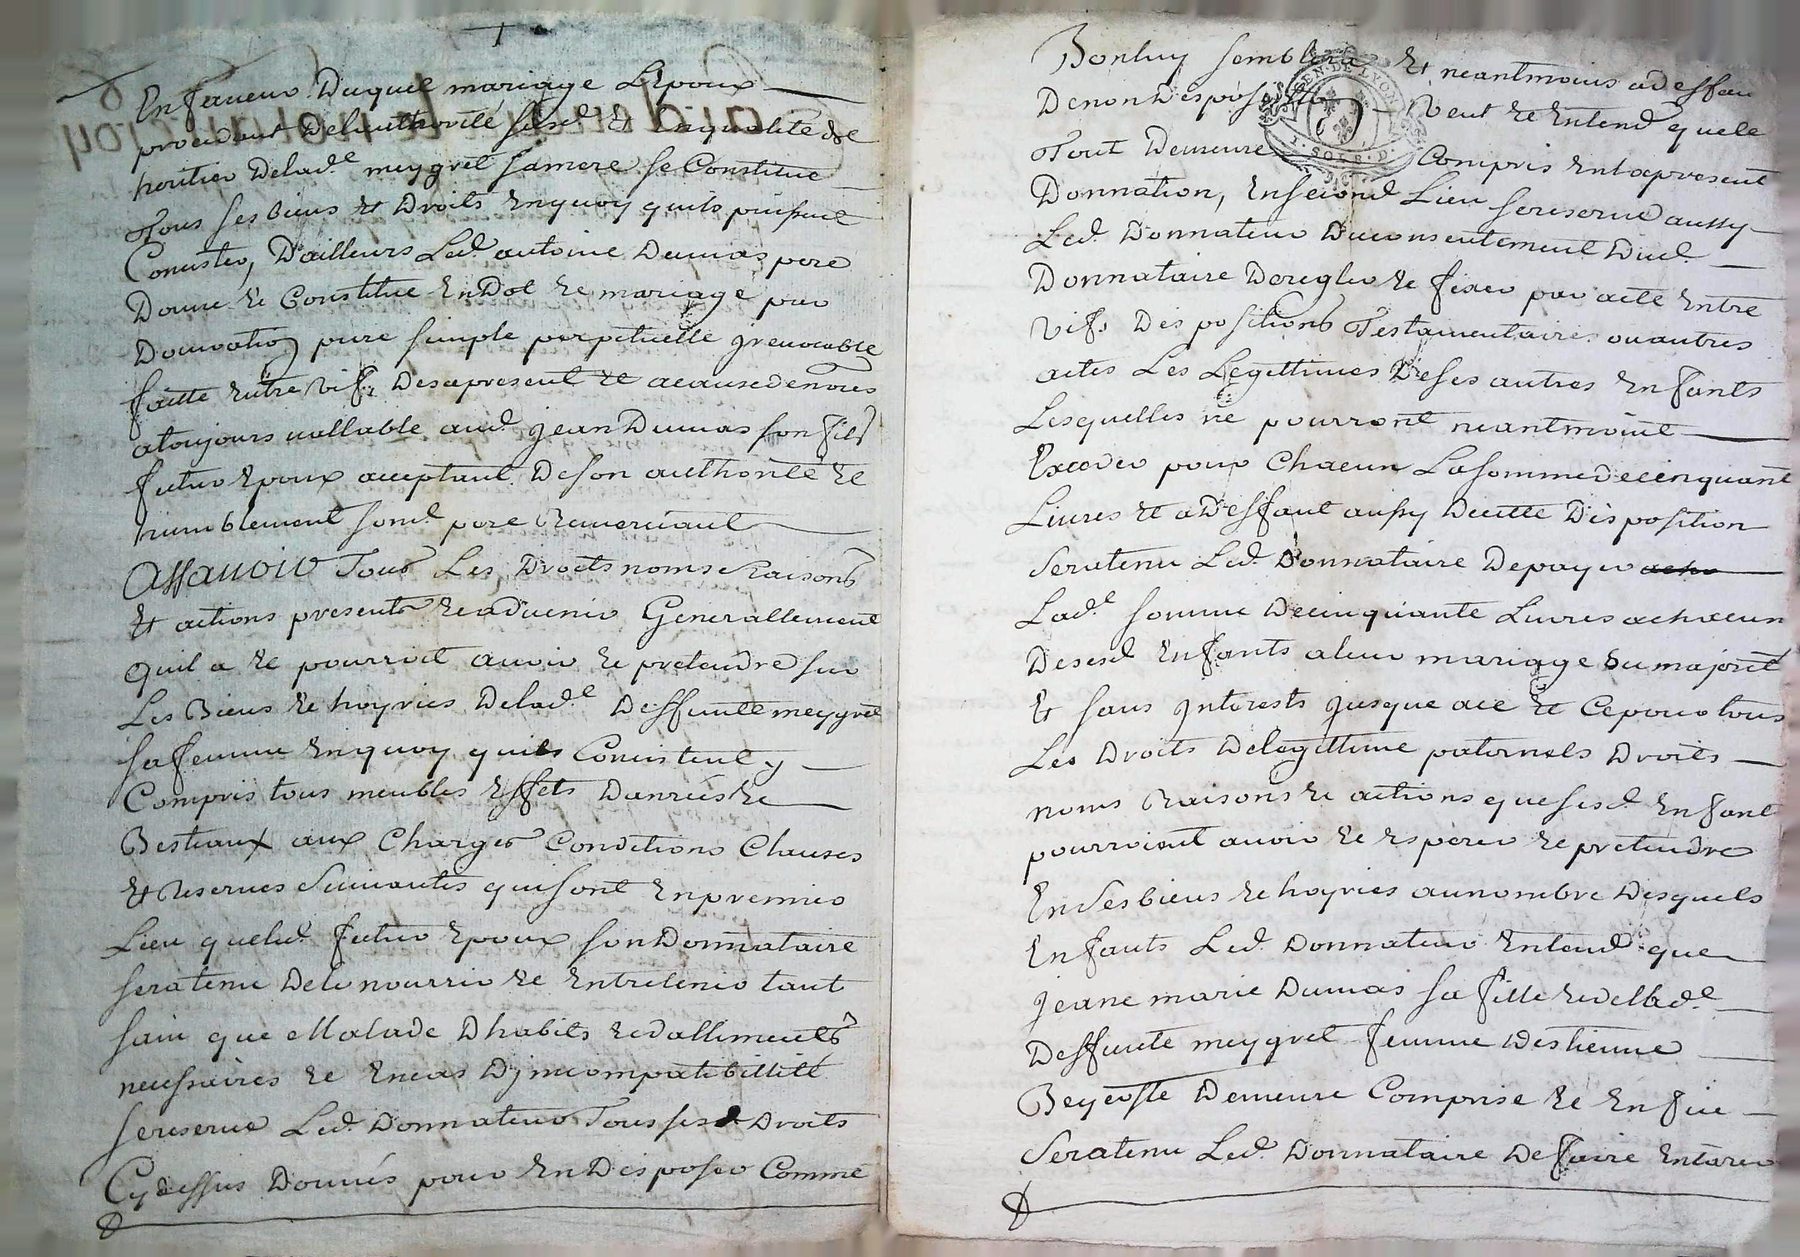 En faveur Duquel mariage L'Epoux
procedant de lauthorité susd. Et En qualité de
heritier Delad.e meygret sa mere se Constitue
Tous ses biens Et Droits En quoy quils puissent
Consister, D'ailleurs Led. antoine Dumas pere
Donne Et Constitue En Dot de mariage par
Donnation pure simple perpetuelle jrrevocable
faitte Entre Vifs Des apresent Et a cause de nôces
a toujours vallable aud. jean Dumas son fils
futur Epoux acceptant De son authorité Et
humblement sond. pere Remerciant
Assavoir Tous Les Droits noms Raisons
Et actions presents Et advenir Generallement
quil a Et pourroit avoir Et pretendre sur
Les Biens Et hoyries Delad.e Deffunte meygret
sa femme En quoy quils Consistent y
Compris tous meubles Effets Danrées Et
Bestiaux aux Charges Conditions Clauses
Et Reserves Suivantes qui sont En premier
Lieu queled. futur Epoux son Donnataire
sera tenu De le nourrir Et Entretenir tant
sain que Malade Dhabits Et dalliments
necessaires Et En cas Djncompatibillité
se reserve Led. Donnateur Tous sesd. Droits
Cy dessus Donnés pour En Disposer Comme
Bon luy semblera Et neantmoins a deffau
De non Disposition Veut Et Entend que le
Tout Demeure Compris En la present
Donnation, En second Lieu se reserve aussy
Led. Donnateur Du consentement Dud.
Donnataire De regler Et fixer par acte Entre
Vifs Dispositions Testamentaires ou autres
actes Les Legittimes De ses autres Enfants
Lesquelles ne pourront neantmoint
Exceder pour Chacun La somme de cinquant
Livres Et a Deffaut aussy De cette Disposition
Sera tenu Led. Donnataire De payer
Lad.e somme De cinquante Livres a chacun
De sesd. Enfants a leur mariage ou majorité
Et sans jnterests jusque a ce Et Ce pour tous
Les Droits De legittime paternels Droits
noms Raisons Et actions que sesd. Enfant
pourroient avoir Et Esperer Et pretendre
En Ses biens Et hoyries au nombre Desquels
Enfants Led. Donnateur Entend que
jeane marie Dumas sa fille Et de lad.e
Deffunte meygret femme Destienne
Beyeoste Demeure Comprise Et En fin
Sera tenu Led. Donnataire De faire Enterrer
GEN. DE LYON
I. SOLS. D.